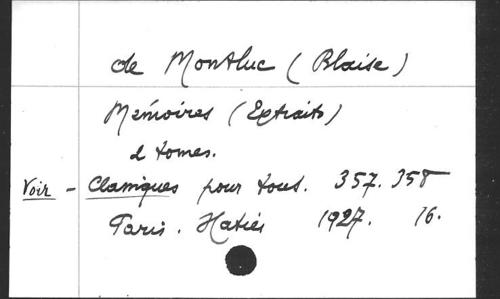 de Montluc (Blaise)
Mémoires (Extraits)
2 tomes.
Voir - Classiques pour tous. 357. 358
Paris. Hatier 1927. 16.